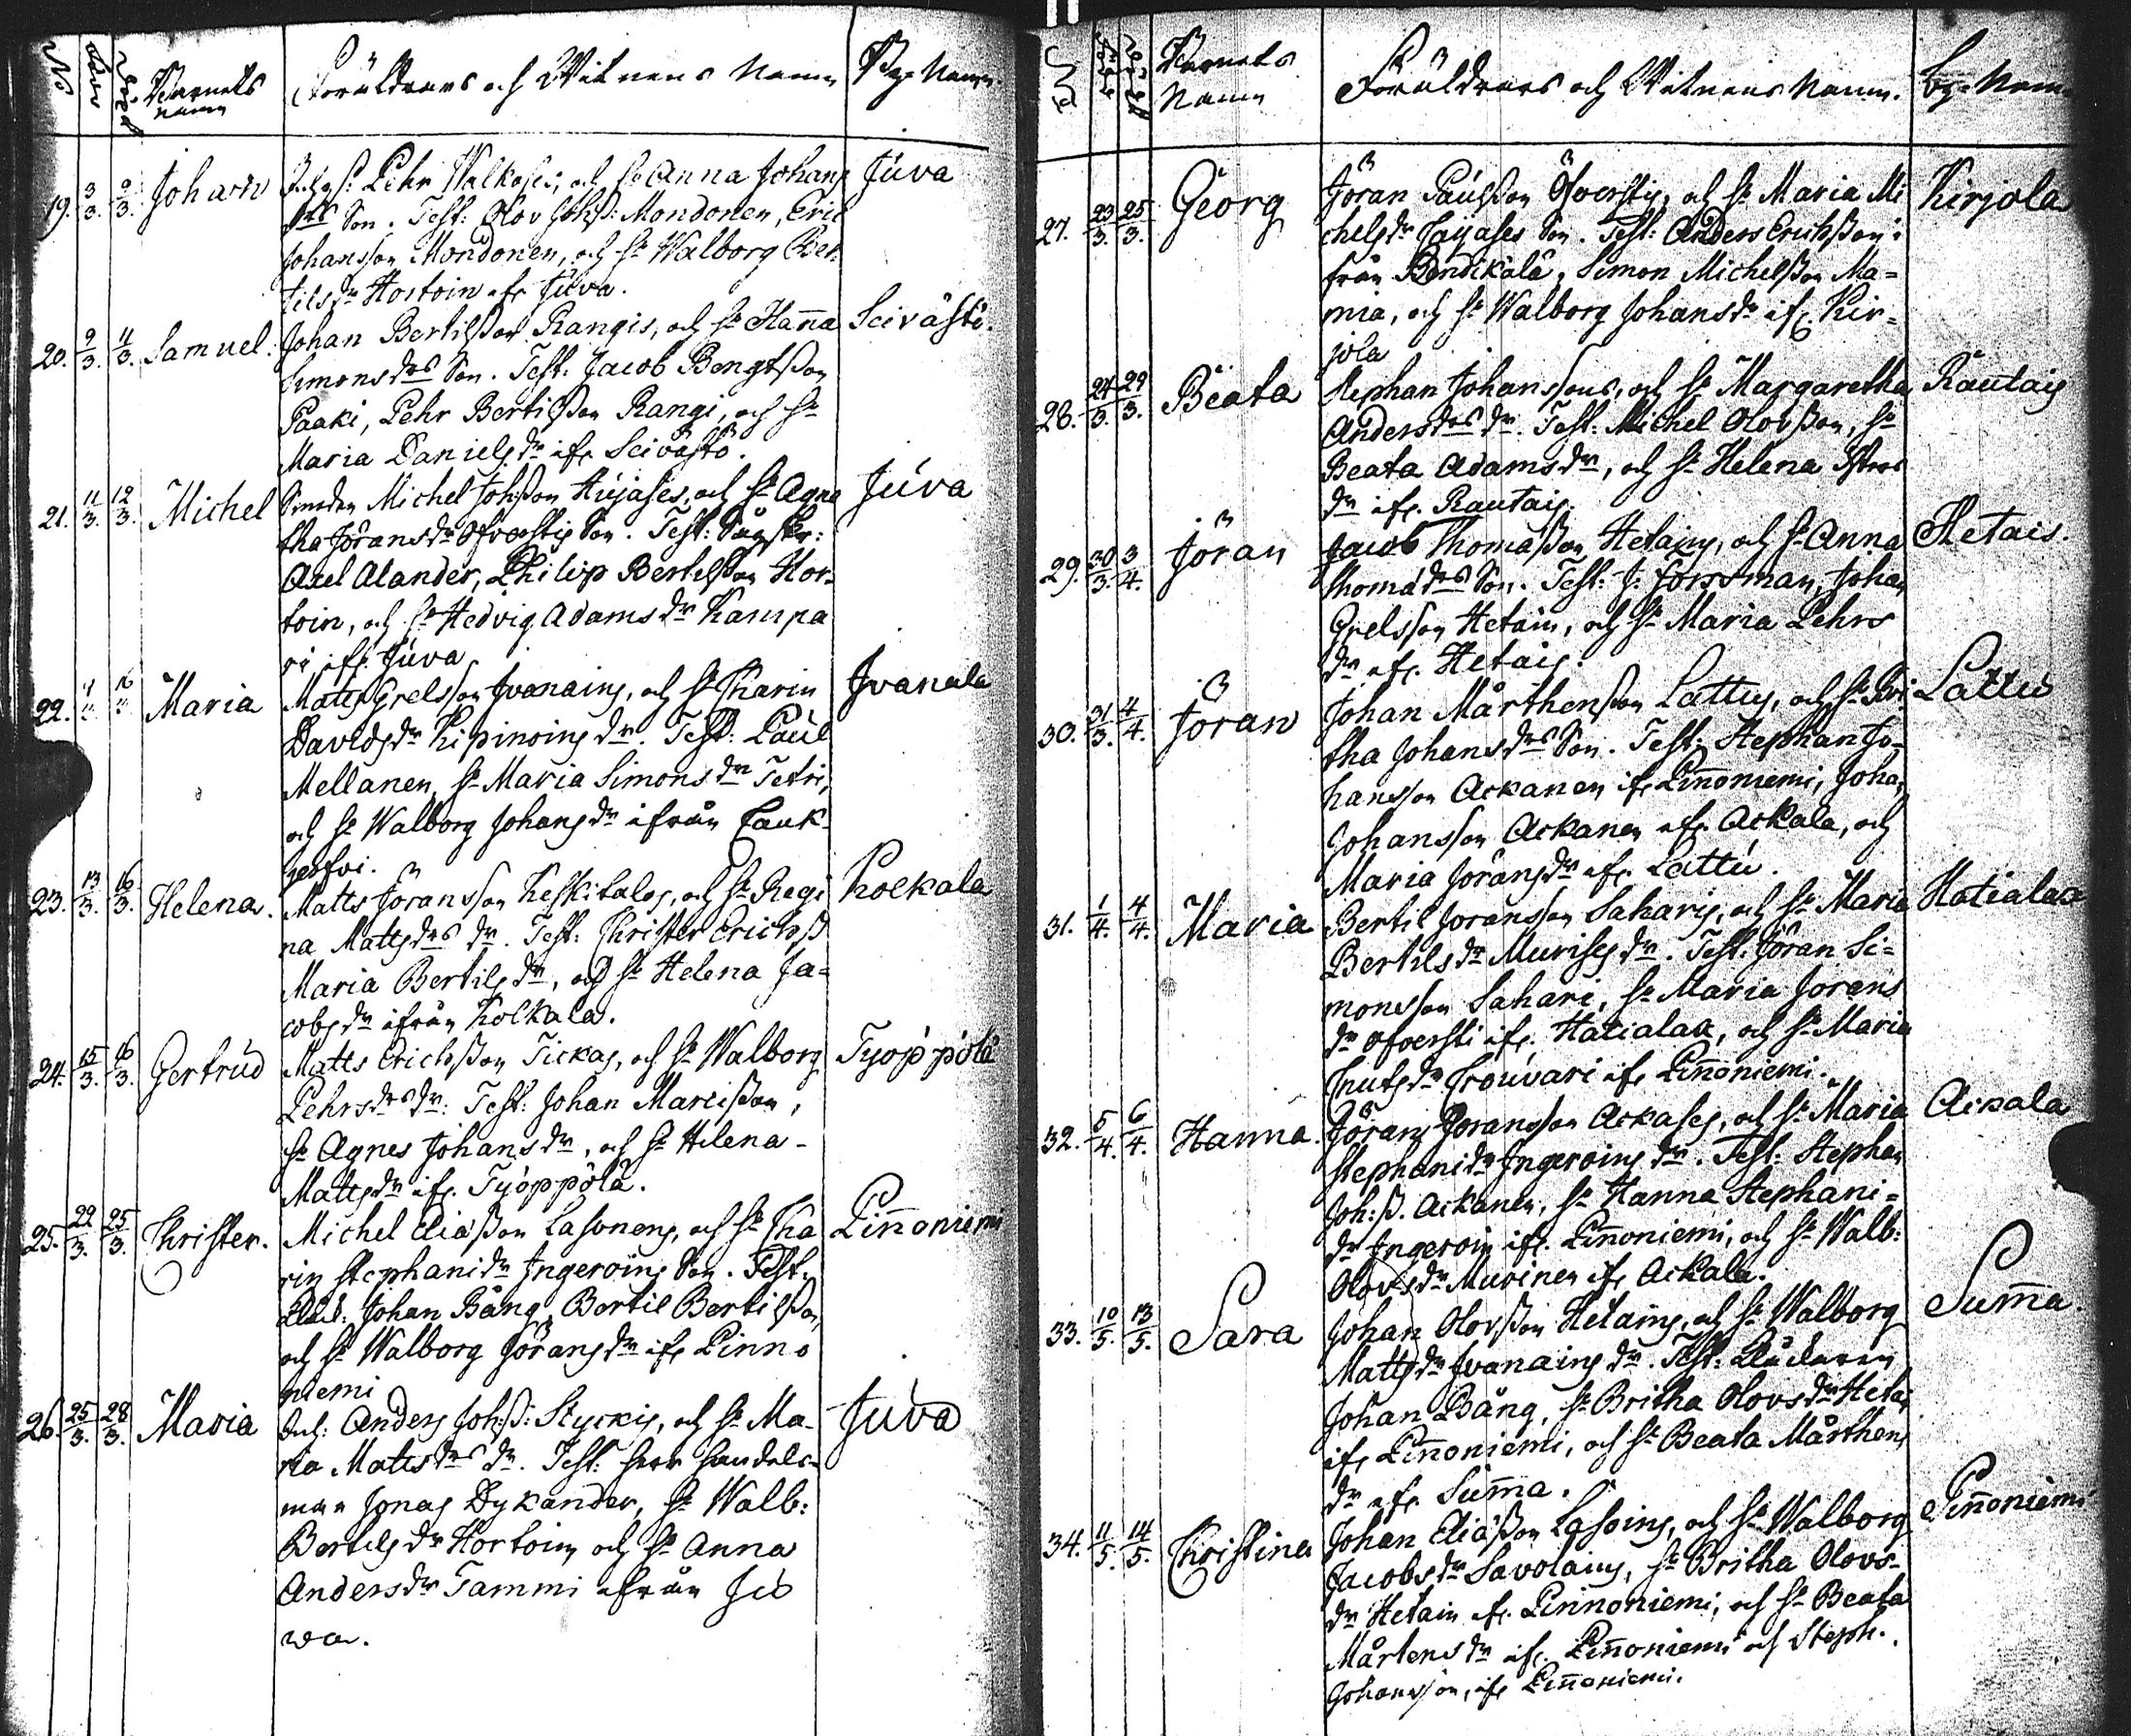 No
född
döpt
Barnets
namn
Föräldrars och Witnens Namn
By-Namn
19. 3/3. 9/3. Johan
Pehr Walkoses, och h: Anna Johans
drs Son. Test: Olov Johß: Mondonen, Eric
Johansson Mondonen, och h: Walborg Ber
tilsdr Hortoin ifr. Juva.
Juva
20. 9/3. 11/3. Samuel.
Johan Bertilsson Rangis, och h: Hanna
Simonsdrs Son. Test: Jacob Bengtsson
Paaki, Pehr Bertilsson Rangi, och h:
Maria Danielsdr ifr. Seivästö.
Seivästö.
21. 11/3. 12/3. Michel
Michel Johsson Hujases, och h: Agne
tha Jöransdr Ofverstis Son. Test:
Axel Alander, Philip Bertilsson Hor-
toin, och h: Hedvig Adamsdr Kaurpa
ri ifr. Juva
Juva
22. Maria
Matts Grelsson Ivanains, och h: Karin
Davidsdr Kipinoins dr. Test: Paul
Mellanen, h: Maria Simonsdr Tetri,
och h: Walborg Johansdr ifrån Lauk-
Ivanala
23. 13/3. 16/3. Helena.
Matts Jöransson Keskitalos, och h: Regi
na Mattsdrs dr. Test: Christer Erichsß
Maria Bertilsdr, och h: Helena Ja-
cobsdr ifrån Kolkala.
Kolkala
24. 15/3. 16/3. Gertrud
Matts Erichsson Tickas, och h: Walborg
Pehrsdrs dr. Test: Johan Marcisson,
h: Agnes Johansdr, och h: Helena
Mattsdr ifr. Tyoppölä.
Tyoppölä
25. 22/3. 25/3. Christer.
Michel Eliasson Lasonens, och h: Cha
rin Stephanidr Ingeroins Son. Test:
Johan Bång, Bertil Bertilsson,
och h: Walborg Jöransdr ifr. Pinno
niemi
Pinnoniemi
26. 25/3. 28/3. Maria
Anders Johß: Styckis, och h: Ma-
ria Mattsdrs dr. Test: Herr Handels-
man Jonas Dykander, h: Walb:
Bertilsdr Hortoin och h: Anna
Andersdr Tammi ifrån Ju
va.
Juva
No
född
döpt
Barnets
Namn
Föräldrars och Witnens Namn.
By-Namn
27. 23/3. 25/3. Georg
Jöran Paulsson Ofverstis, och h: Maria Mi
chelsdr Caijases Son. Test: Anders Erichsson
från Bendikälä, Simon Michelsson Ma-
mia, och h: Walborg Johansdr ifr. Kir-
jola
Kirjola
28. 24/3. 29/3. Beata
Stephan Johanssons, och h: Margaretha
Andersdrs dr. Test: Michel Olovsson, h:
Beata Adamsdr, och h: Helena
dr ifr. Rautais.
Rautais
29. 30/3. 3/4. Jöran
Jacob Thomasson Hetains, och h: Anna
Thomädrs Son. Test: J: Forssman, Johan
Grelsson Hetain, och h: Maria Pehrs
dr ifr. Hetais.
Hetais.
30. 31/3. 4/4. Jöran
Johan Mårthensson Lattus, och h: Bri
tha Johansdrs Son. Test: Stephan Jo-
hansson Ackanen ifr. Pinnoniemi, Johan
Johansson Ackanen ifr. Ackala, och
Maria Jöransdr ifr. Lattu.
Lattu
31. 1/4. 4/4. Maria
Bertil Joransson Saharis, och h: Maria
Bertilsdr Murises dr. Test: Jöran Si-
monsson Sahari, h: Maria Jorans
dr Ofversti ifr. Hatialax, och h: Maria
Knutsdr Crouvari ifr. Pinnoniemi.
Hatialax
32. 5/4. 6/4. Hanna.
Jöran Joransson Ackases, och h: Maria
Stephanidr Ingeroins dr. Test: Stephan
Joh:ß. Ackanen, h: Hanna Stephani-
dr Ingeroin ifr. Pinnoniemi, och h: Walb:
Olovsdr Murinen ifr. Ackala.
Ackala
33. 10/5. 13/5. Sara
Johan Olovsson Hetains, och h: Walborg
Mattsdr Ivanains dr. Test:
Johan Bång, h: Britha Olovsdr Hetai
ifr. Pinnoniemi, och h: Beata Mårthens
dr ifr. Summa.
Summa.
34. 11/5. 14/5. Christina
Johan Eliasson Lasoins, och h: Walborg
Jacobsdr Savolains, h: Britha Olovs-
dr Hetain ifr. Pinnoniemi, och h: Beata
Mårtensdr ifr. Pinnoniemi och Steph.
Johansson, ifr. Pinnoniemi.
Pinnoniemi